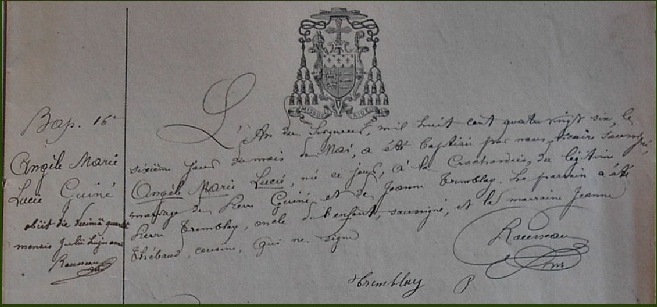 Bap. 16e
Angèle Marie
Lucie Guiné
Rousseau
L'An du Seigneur mil huit cent quatre vingt six, le
sixième jour du mois de Mai, a été baptisée par nous vicaire soussigné,
Angèle Marie Lucie, née ce jour, à la du légitime
mariage de Pierre Guiné et de Jeanne Tremblay. Le parrain a été
Pierre Tremblay, oncle de l'enfant, soussigné, et la marraine Jeanne
Thébaud, cousine, qui ne signe
Rousseau
Tremblay P